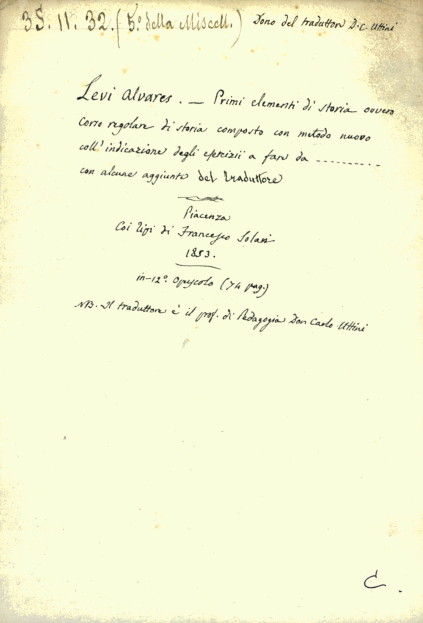 3S. 11. 32. (5.º della Miscell.) Dono del traduttore D. C. Uttini
Levi Alvares. — Primi elementi di storia ovvero
Corso regolare di storia composto con metodo nuovo
coll' indicazione degli esercizii a fare da ----------
con alcune aggiunte del traduttore
Piacenza
Coi tipi di Francesco Solari
1853.
in-12º Opuscolo (74 pag.)
NB. Il traduttore è il prof. di Pedagogia Don Carlo Uttini
C.